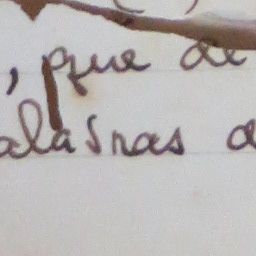 , que de
alavras d